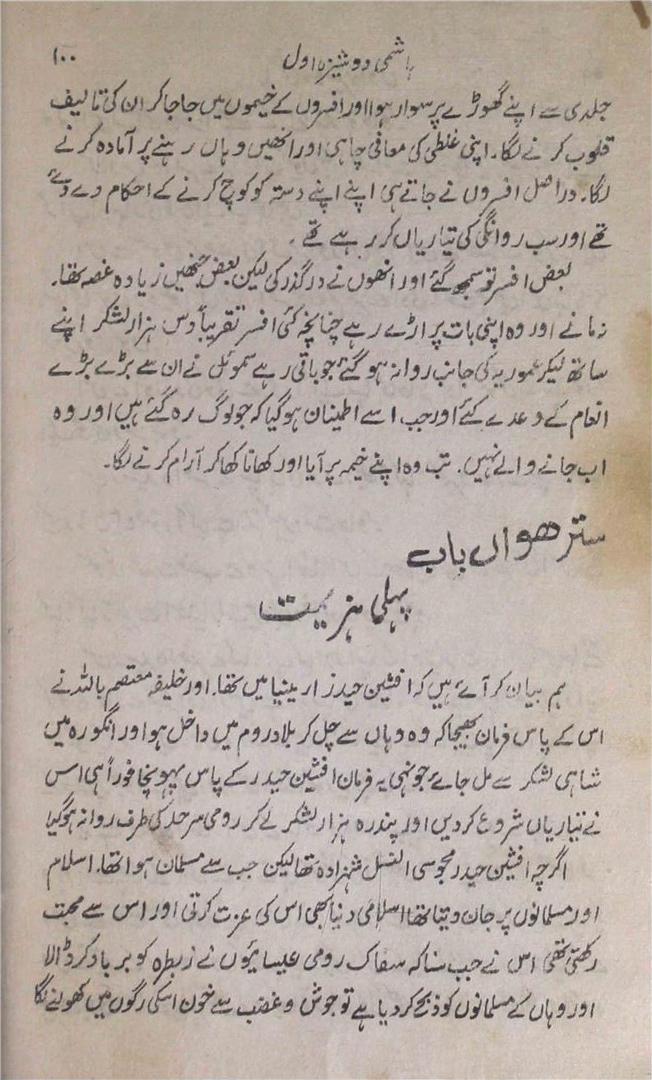 ہاشمی دوشیزہ اول ۱۰۰
جلدی سے اپنے گھوڑے پر سوار ہوا اور افسروں کے خیموں میں جا جا کر ان کی تالیف
قلوب کرنے لگا۔ اپنی غلطی کی معافی چاہی اور انھیں وہاں رہنے پر آمادہ کرنے
لگا۔ دراصل افسروں نے جاتے ہی اپنے اپنے دستہ کو کوچ کرنے کے احکام دے دئے
تھے اور سب روانگی کی تیاریاں کر رہے تھے۔
بعض افسر تو سمجھ گئے اور انھوں نے درگذر کی لیکن بعض جنھیں زیادہ غصہ تھا۔
نہ مانے اور وہ اپنی بات پر اڑے رہے چنانچہ کئی افسر تقریباً دس ہزار لشکر اپنے
ساتھ لیکر عموریہ کی جانب روانہ ہو گئے جو باقی رہے سموئل نے ان سے بڑے بڑے
انعام کے وعدے کئے اور جب اسے اطینان ہو گیا کہ جو لوگ رہ گئے ہیں اور وہ
اب جانے والے نہیں۔ تب وہ اپنے خیمہ پر آیا اور کھانا کھا کر آرام کرنے لگا۔
سترھواں باب
پہلی ہزیمت
ہم بیان کر آئے ہیں کہ افشین حیدر آرمینیا میں تھا۔ اور خلیفہ معتصم باللہ نے
اس کے پاس فرمان بھیجا کہ وہ وہاں سے چل کر بلاد روم میں داخل ہو اور انگورہ میں
شاہی لشکر سے مل جائے جونہی یہ فرمان افشین حیدر کے پاس پہونچا فوراً ہی اس
نے تیاریاں شروع کردیں اور پندرہ ہزار لشکر لے کر رومی سرحد کی طرف روانہ ہو گیا
اگرچہ افشین حیدر مجوسی النسل شہزادہ تھا لیکن جب سے مسلمان ہوا تھا۔ اسلام
اور مسلمانوں پر جان دیتا تھا اسلامی دنیا بھی اس کی عزت کرتی اور اس سے محبت
رکھتی تھی اس نے جب سنا کہ سفاک رومی عیسائیوں نے زبطرہ کو برباد کر ڈالا
اور وہاں کے مسلمانوں کو ذبح کر دیا ہے تو جوش و غضب سے خون اسکی رگوں میں کھولنے لگا